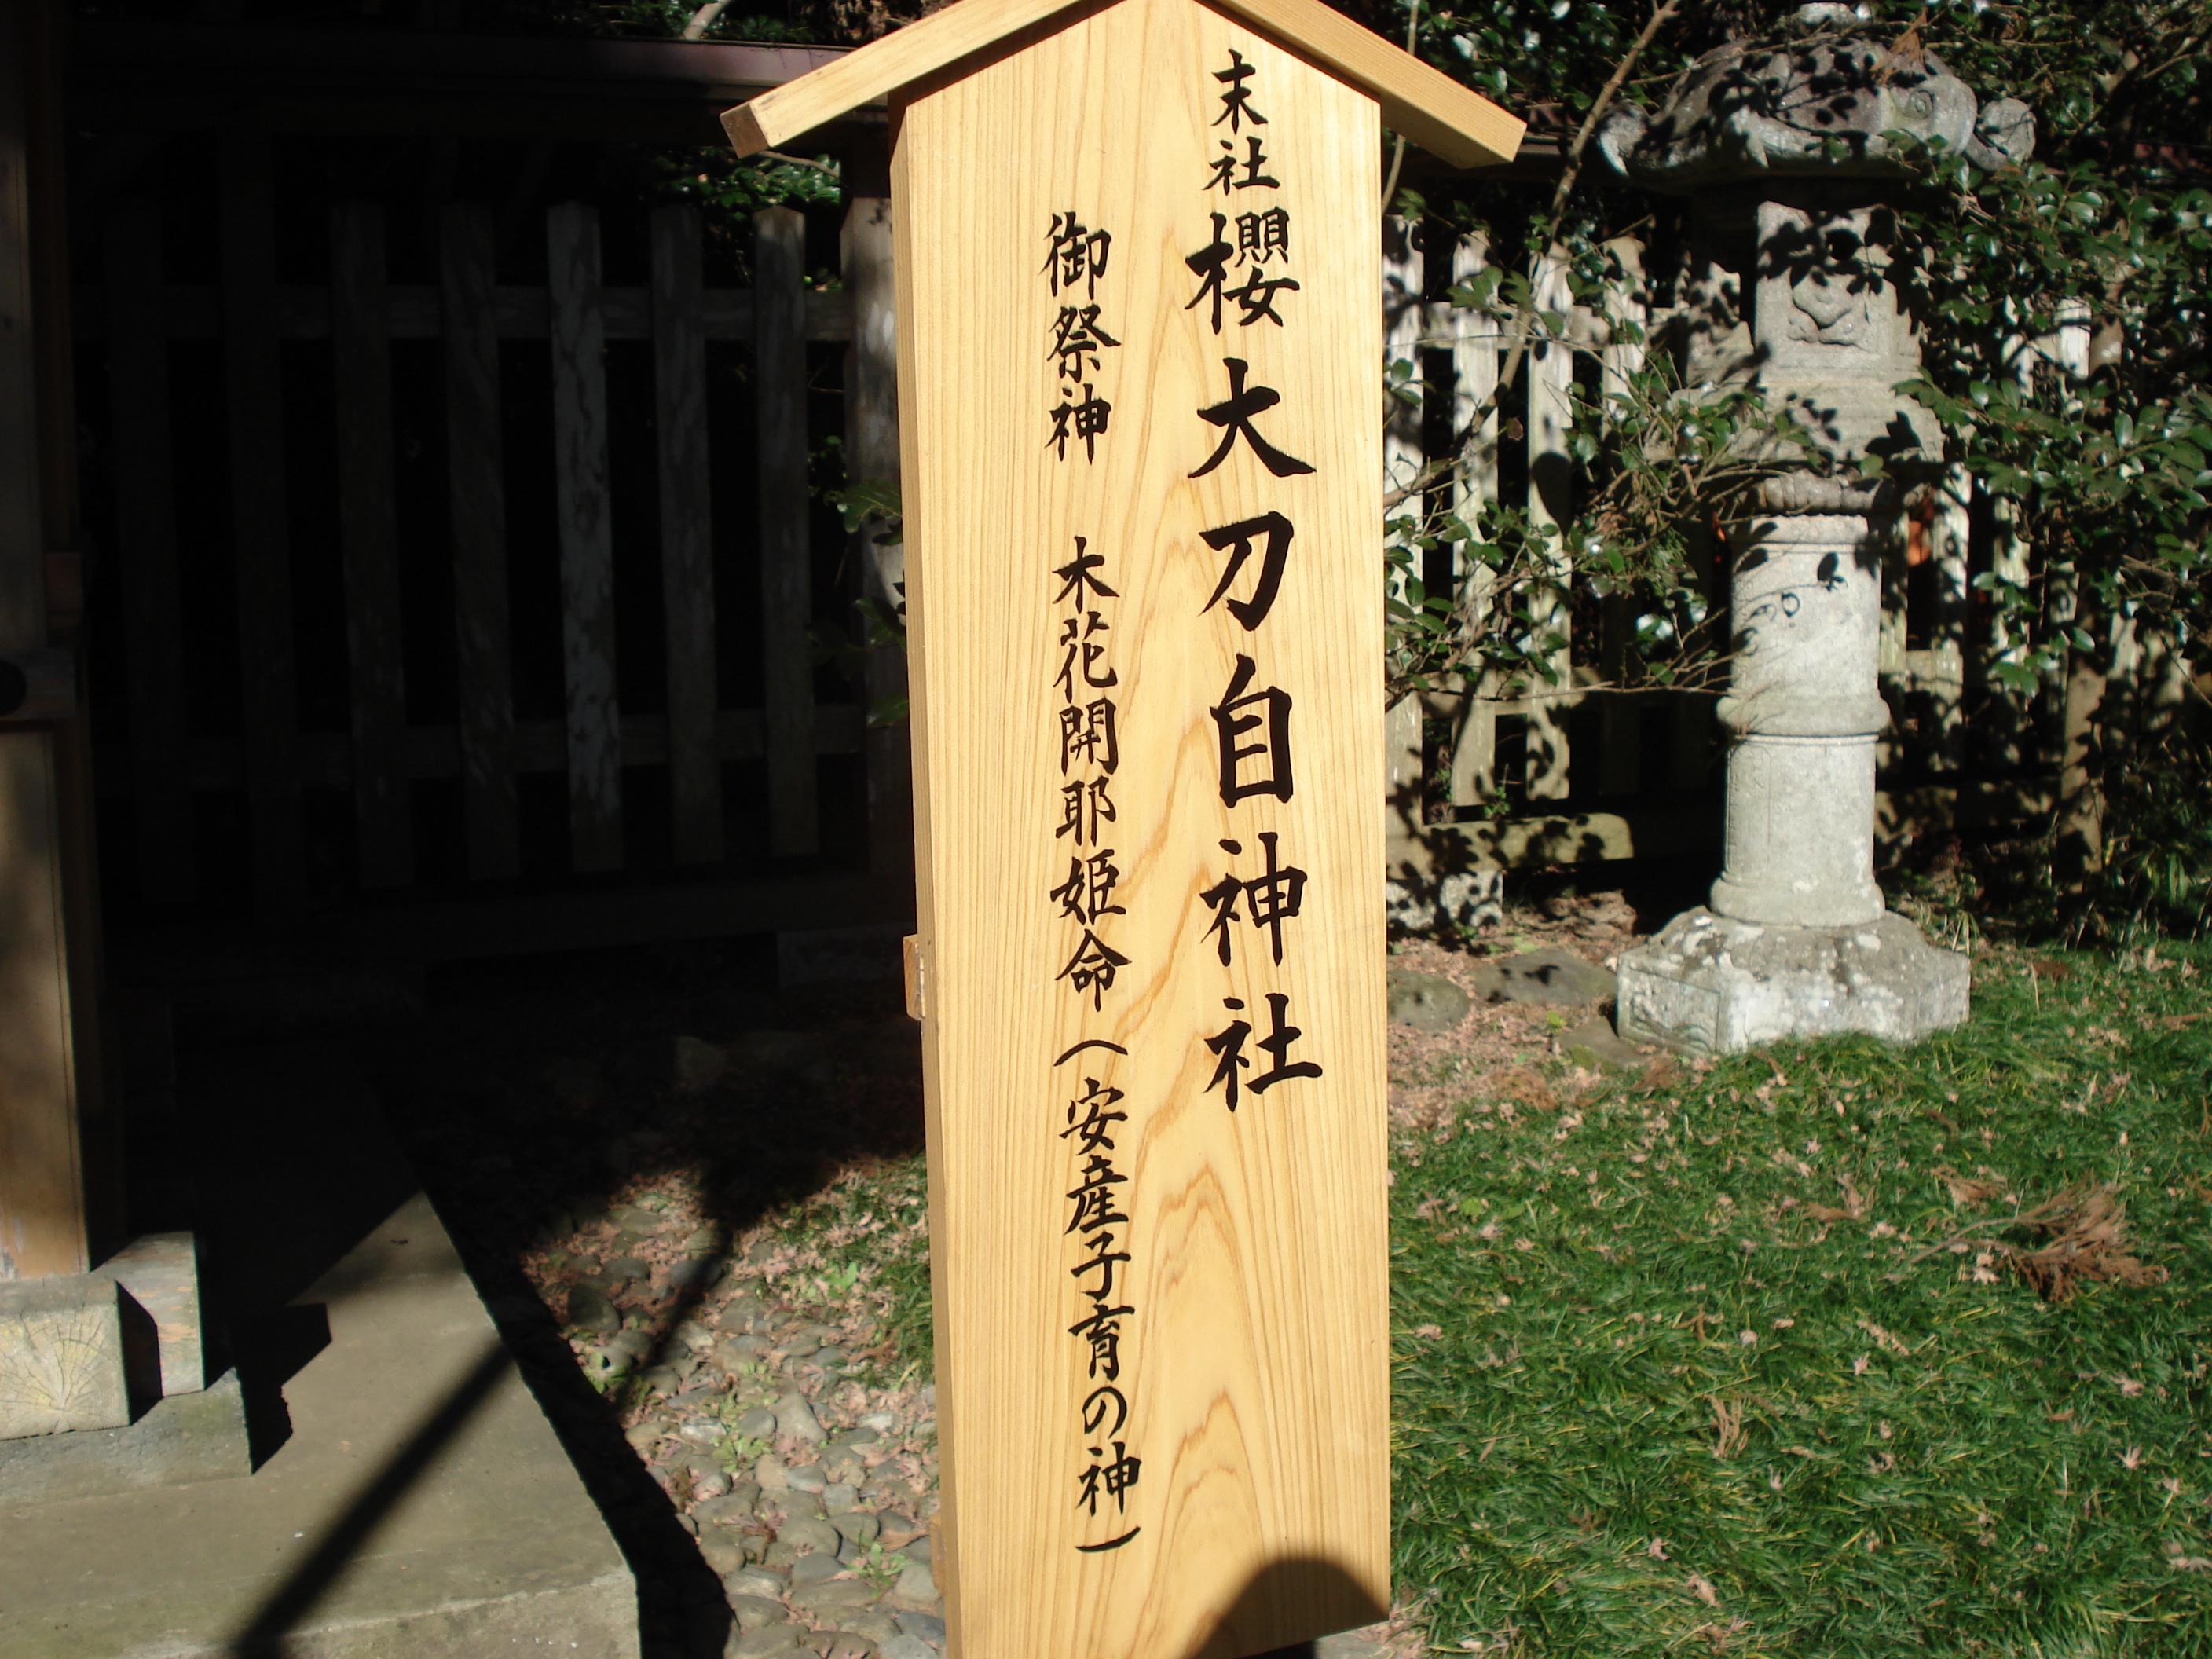 末社 櫻大刀自神社
御祭神 木花開耶姫命(安産子育の神)